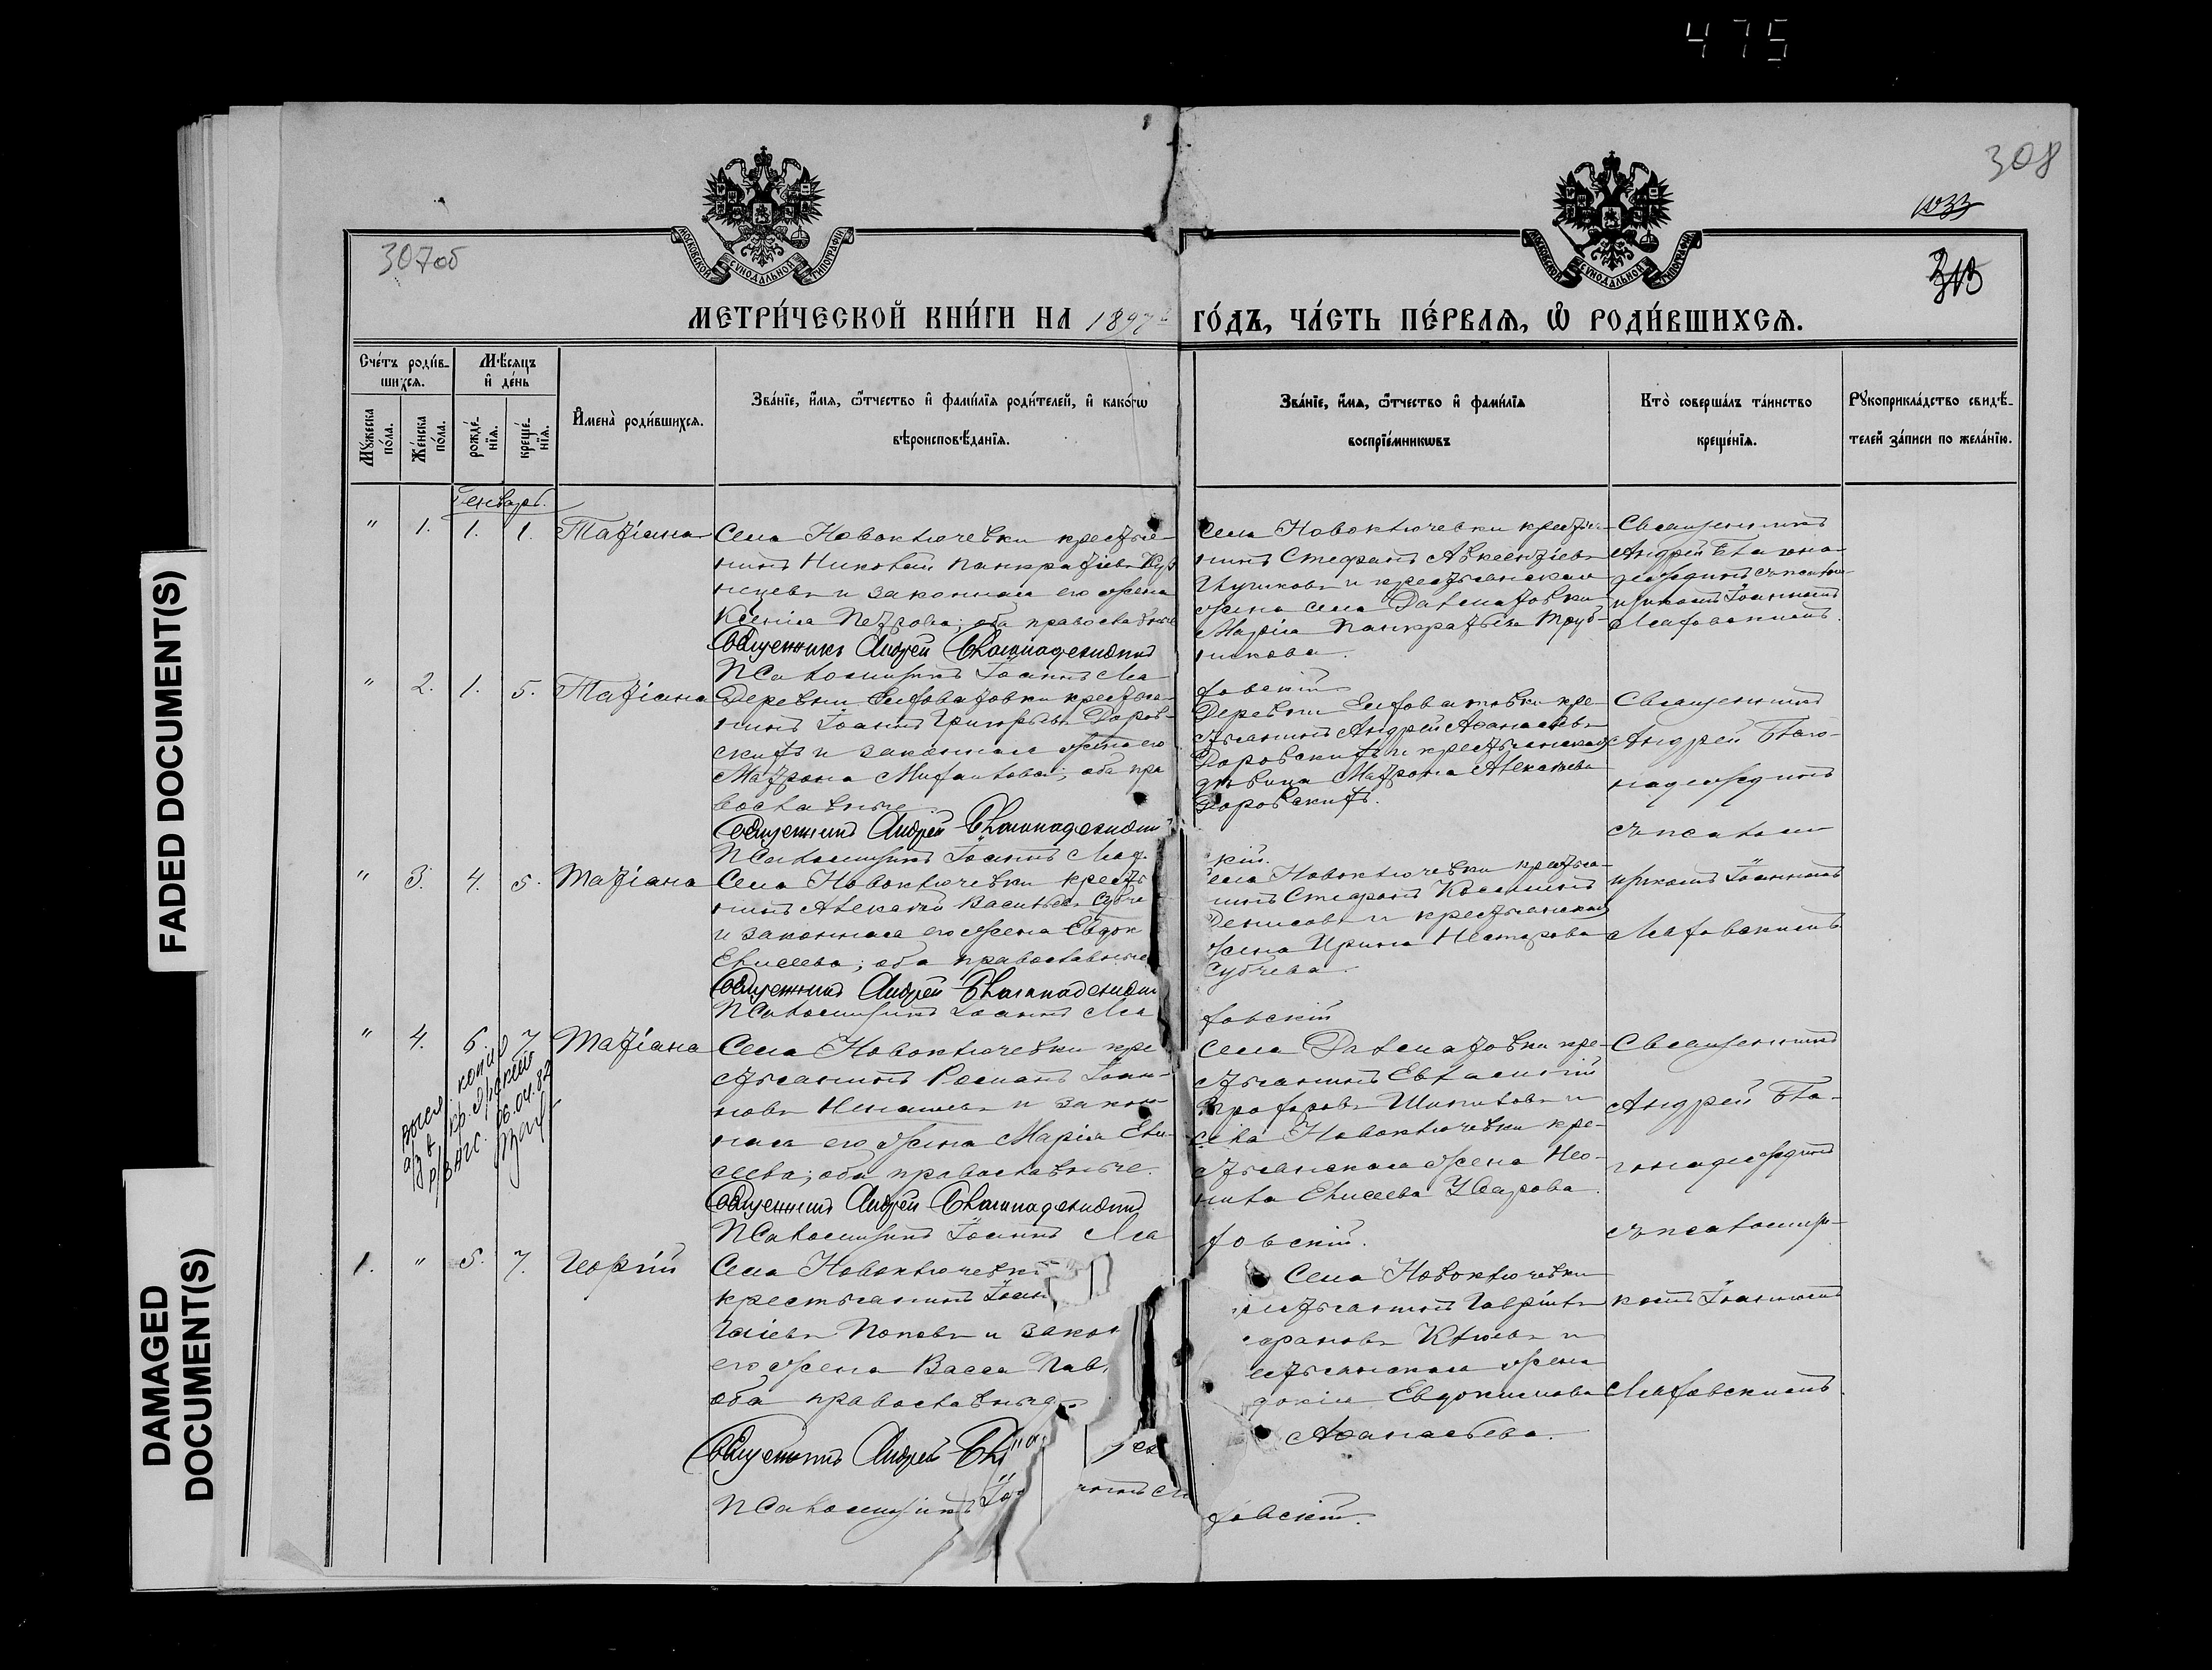 475
308
1033
307об
313
МОСКОВСКОЙ СѴНОДАЛЬНОЙ ТИПОГРАФІИ
МОСКОВСКОЙ СѴНОДАЛЬНОЙ ТИПОГРАФІИ
МЕТРИ́ЧЕСКОЙ КНИ́ГИ НА 1897 ГО́ДЪ, ЧА́СТЬ ПЕ́РВАЯ, Ѡ РОДИ́ВШИХСЯ.
Сче́тъ роди́в-
шихся.
Мꙋ́жеска по́ла.
Же́нска по́ла.
Мѣ́сяцъ
и де́нь
рожде́-
нїя.
креще́-
нїя.
Имена̀ роди́вшихся.
Зва́нїе, и́мя, ѻ́тчество и фами́лїя роди́телей, и како́гѡ
вѣроисповѣ́данїя.
Зва́нїе, и́мя, ѻ́тчество и фами́лїя
воспрїе́мникѡвъ
Кто̀ соверша́лъ та́инство
креще́нїя.
Рꙋкоприкла́дство свидѣ́-
телей за́писи по жела́нїю.
Генварь.
" 1. 1. 1. Татіана
Села Новоключевки крестья-
нинъ Николай Панкратіевъ Куз
нецевъ и законная его жена
Ксенія Петрова; оба православные
Священникъ Андрей Благонадеждинъ
Псаломщикъ Іоаннъ Ма
Села Новоключевки крестья-
нинъ Стефанъ Авксентіевъ
и крестьянская
жена села Далматовки
Марія Панкратьева Труб-
никова.
товскій
Священникъ
Андрей Благона-
деждинъ съ псалом-
щикомъ Іоанномъ
Матовскимъ.
" 2. 1. 5. Татіана
Деревни Елфоватовки крестья-
нинъ Іоаннъ Григорьевъ Доров-
скихъ и законная жена его
Матрона Михайлова; оба пра
вославные.
Священникъ Андрей Благонадеждин
Псаломщикъ Іоаннъ Мат
Деревни Елфоватовки кре-
стьянинъ Андрей Аѳанасьевъ
Доровскихъ и крестьянская
дѣвица Матрона Алексѣева
Доровскихъ.
кій.
Священникъ
Андрей Благо-
надеждинъ
съ псалом
щикомъ Іоанномъ
Матовскимъ
" 3. 4. 5. Татіана
Села Новоключевки крестья
нинъ Алексѣй Васильевъ Субче
и законная его жена Евдок
Елисеева; оба православные
Священникъ Андрей Благонадеждин
Псаломщикъ Іоаннъ Ма
села Новоключевки крестья-
нинъ Стефанъ Косьминъ
Денисовъ и крестьянская
жена Ирина Нестерова
Субчева.
товскій
" 4. 6 7 Татіана
копія
06.04.82
Села Новоключевки кре
стьянинъ Романъ Іоан-
новъ Ненашевъ и закон
ная его жена Марія Ели-
сеева; оба православные.
Священникъ Андрей Благонадеждинъ
Псаломщикъ Іоаннъ Ма
Села Далматовки кре-
стьянинъ Евлампій
Трофоровъ Шипиловъ и
села Новоключевки кре-
стьянская жена Нео-
нила Елисеева Уварова.
товскій.
Священникъ
Андрей Бла-
гонадеждинъ
съ псаломщи-
комъ Іоанномъ
Матовскимъ
1. " 5. 7. Георгій
Села Новоключевки
крестьянинъ Іоан
гаіевъ Поповъ и закон
его жена Васса Пав
оба православные
Священникъ Андрей Бла
Псаломщикъ Іо
Села Новоключевки
стьянинъ Гавріилъ
офановъ Клюевъ и
естьянская жена
докія Евдокимова
Аѳанасьева.
товскій.
FADED DOCUMENT(S)
DAMAGED
DOCUMENT(S)